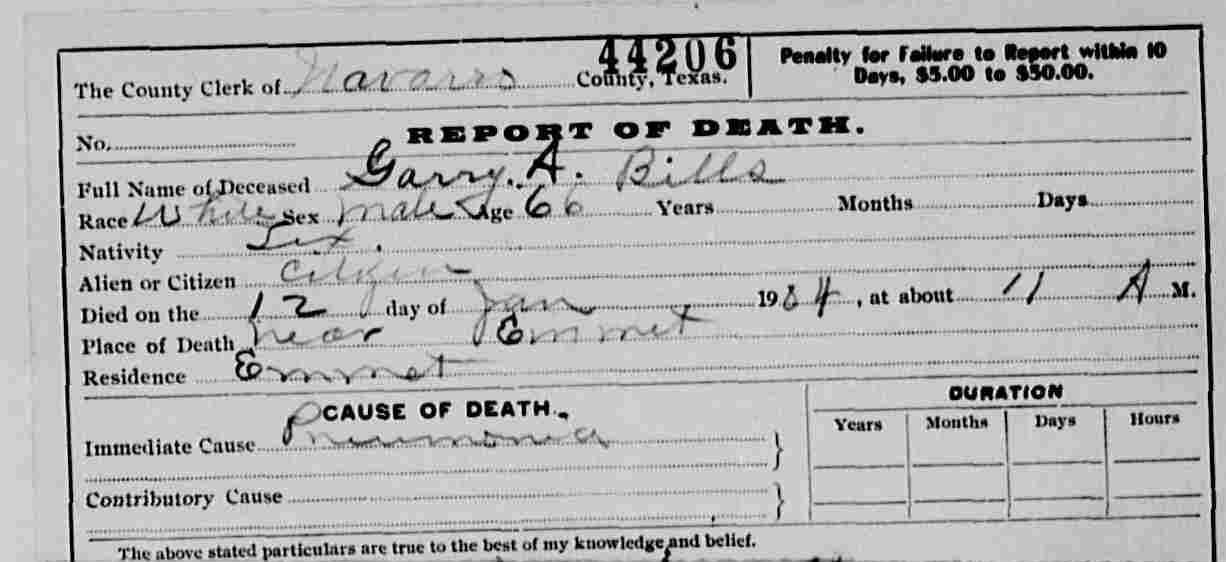 44206
The County Clerk of Navarro County, Texas.
Penalty for Failure to Report within 10
Days, $5.00 to $50.00.
No.
REPORT OF DEATH.
Full Name of Deceased Garry. A. Bills
Race White Sex Male Age 66 Years Months Days
Nativity Tex.
Alien or Citizen Citizen
Died on the 12 day of Jan 1904, at about 11 A M.
Place of Death near Emmet
Residence Emmet
CAUSE OF DEATH.
DURATION
Years Months Days Hours
Immediate Cause Pneumonia
Contributory Cause
The above stated particulars are true to the best of my knowledge and belief.